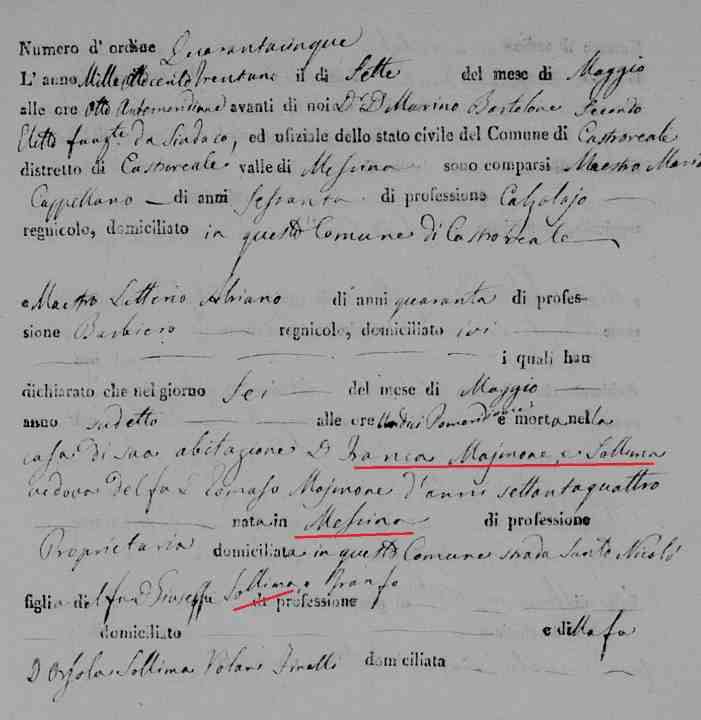 Numero d'ordine Quarantacinque
L'anno Mille ottocento trentuno il di Sette del mese di Maggio
alle ore Otto Antemeridiane avanti di noi Dr. D. Marino Bartolone Secondo
Eletto funzte. da Sindaco, ed ufiziale dello stato civile del Comune di Castroreale
distretto di Castroreale valle di Messina sono comparsi Maestro Mario
Cappellano di anni Sessanta di professione Calzolajo
regnicolo, domiciliato in questo Comune di Castroreale
e Maestro Litterio Abriano di anni quaranta di profes-
sione Barbiero regnicolo, domiciliato ivi
i quali han
dichiarato che nel giorno Sei del mese di Maggio
anno sudetto alle ore Undici Pomeridiane è morta nella
casa di sua abitazione D. Franca Majmone, e Sollima
vedova del fu D. Tomaso Majmone d'anni settantaquattro
nata in Messina di professione
Proprietaria domiciliata in questo Comune strada Santo Nicolò
figlia del fu D. Giuseppe Sollima, e
di professione
domiciliato e della fu
D. Orsola Sollima domiciliata